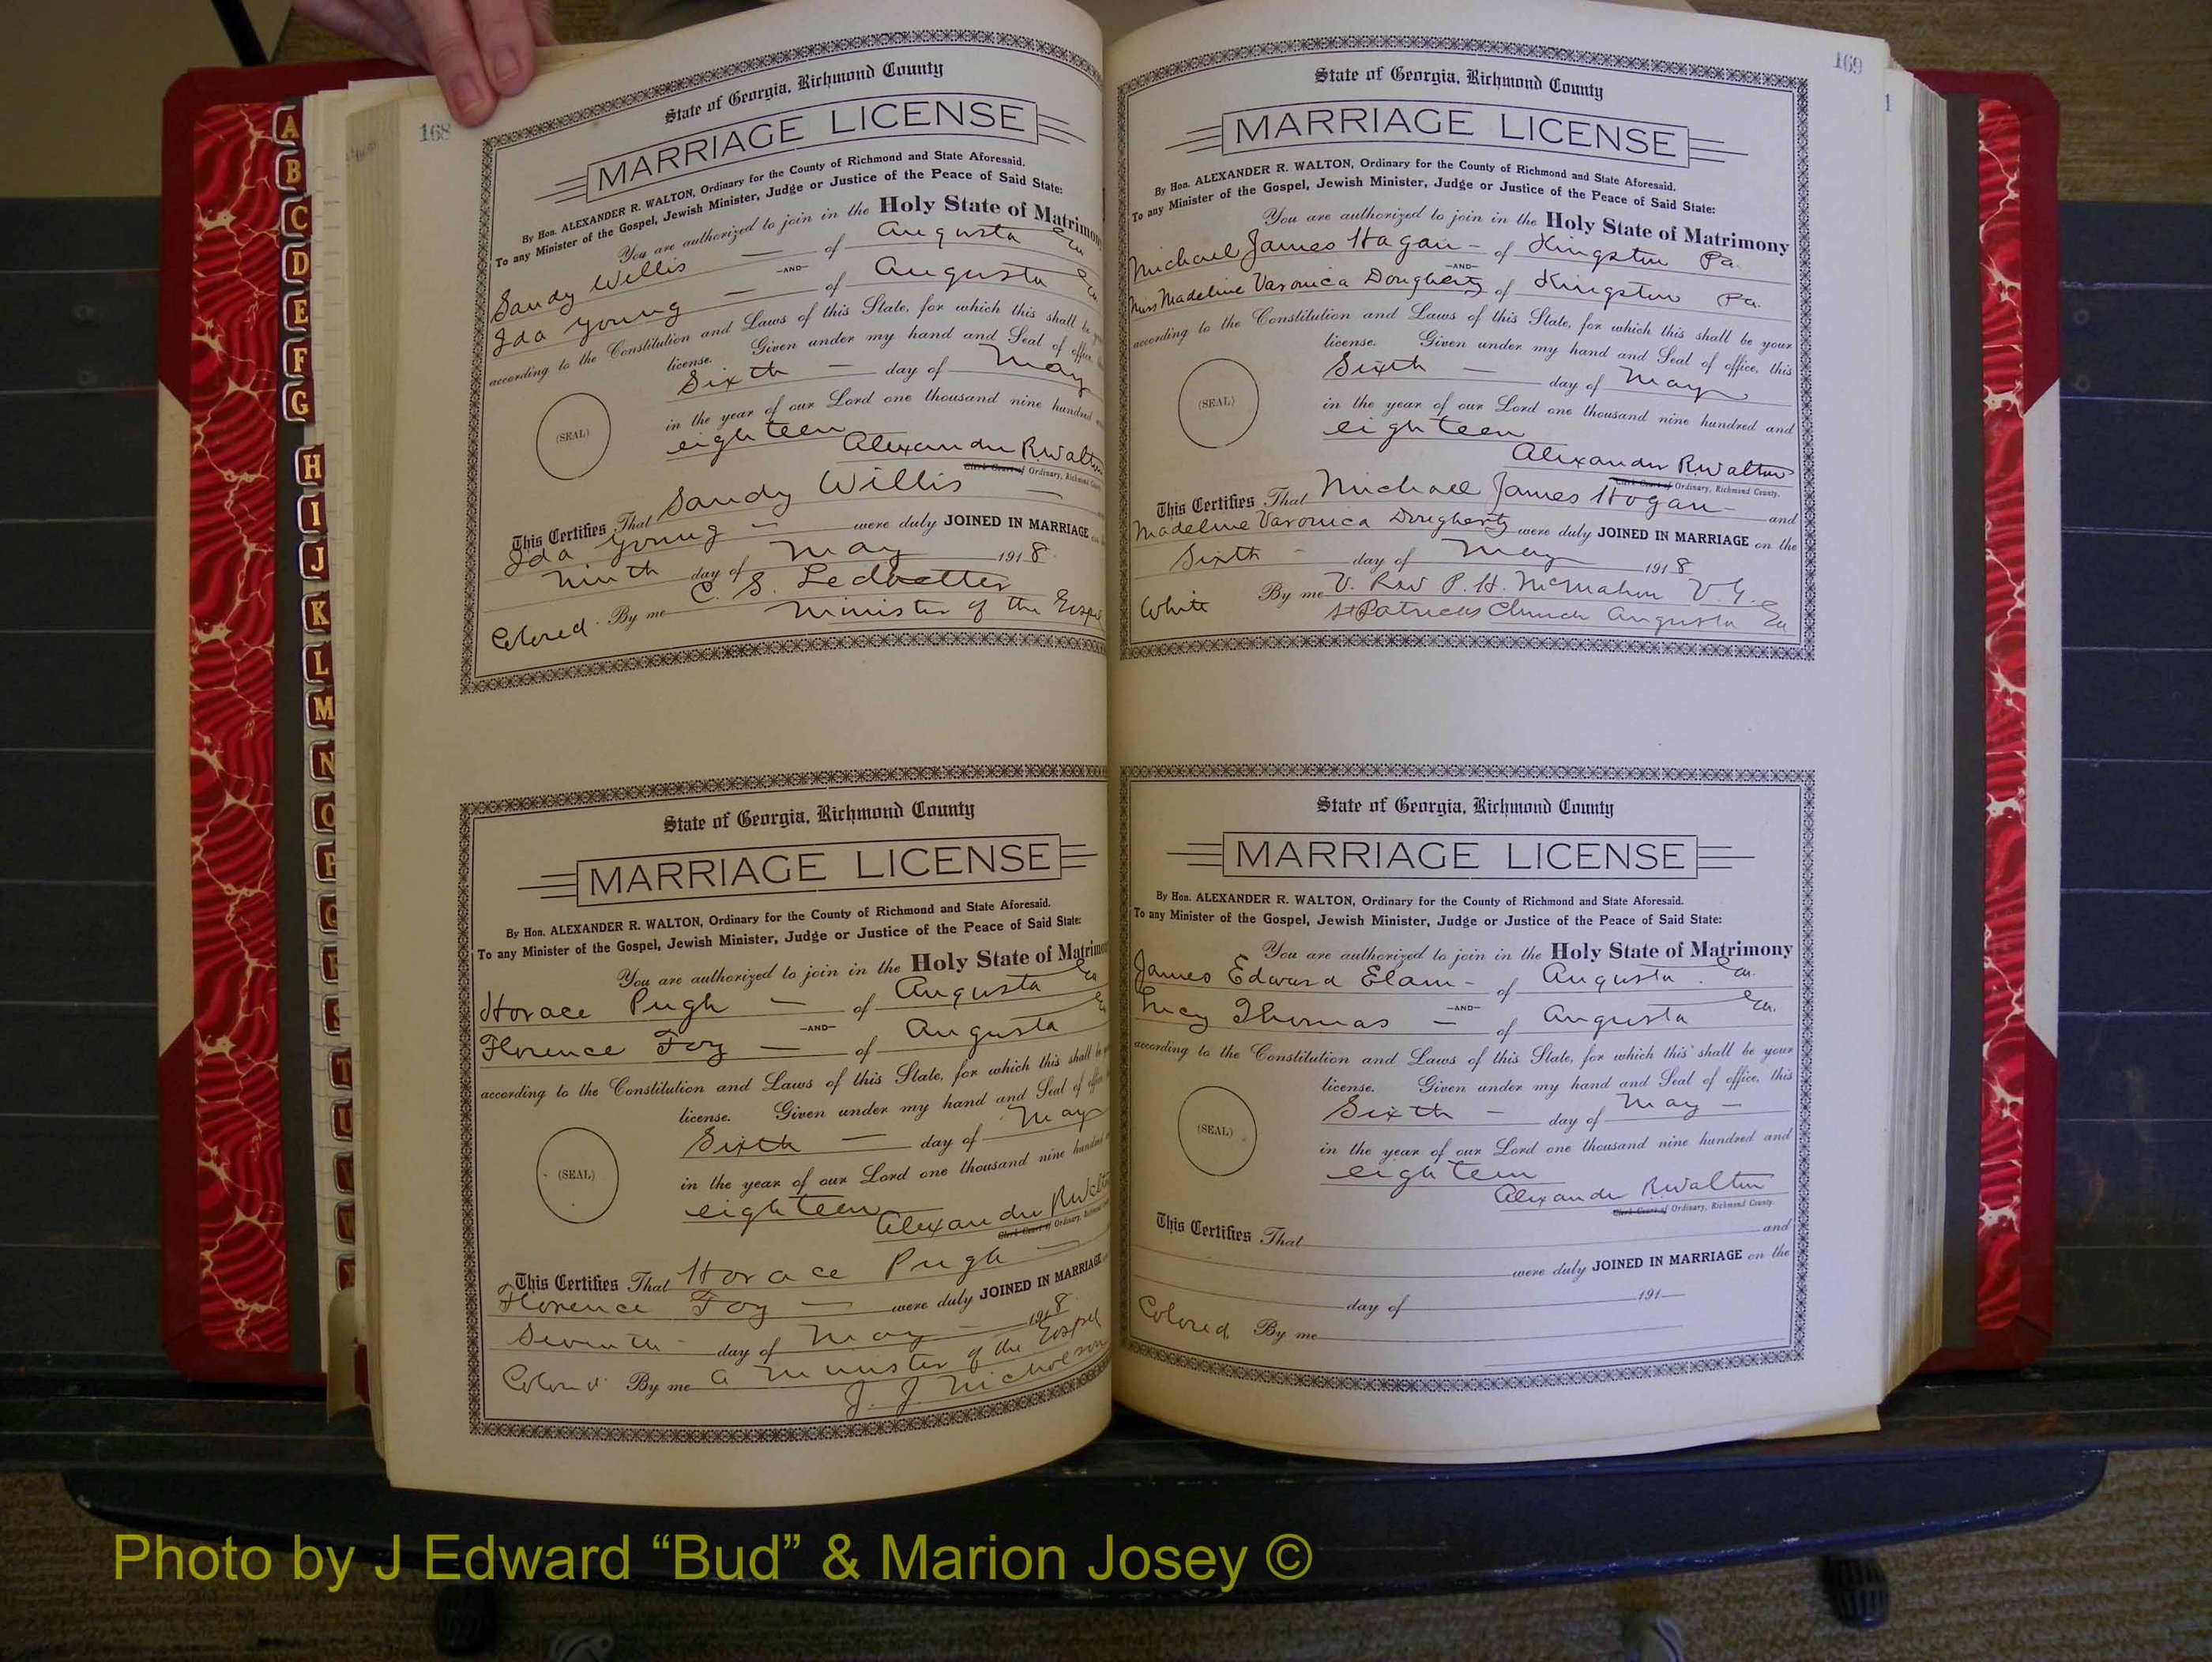 168
State of Georgia, Richmond County
MARRIAGE LICENSE
By Hon. ALEXANDER R. WALTON, Ordinary for the County of Richmond and State Aforesaid.
To any Minister of the Gospel, Jewish Minister, Judge or Justice of the Peace of Said State:
You are authorized to join in the Holy State of Matrimon
Sandy Willis — of Augusta Ga
—AND—
Ida Young — of Augusta Ga
according to the Constitution and Laws of this State, for which this shall be
license. Given under my hand and Seal of office,
Sixth — day of May
in the year of our Lord one thousand nine hundred
eighteen
Alexander R. Walton
Clerk Court of Ordinary, Richmond County.
This Certifies That Sandy Willis —
Ida Young — were duly JOINED IN MARRIAGE
Ninth day of May 1918
Colored. By me C. S. Ledbetter
Minister of the Gospel
State of Georgia, Richmond County
MARRIAGE LICENSE
By Hon. ALEXANDER R. WALTON, Ordinary for the County of Richmond and State Aforesaid.
To any Minister of the Gospel, Jewish Minister, Judge or Justice of the Peace of Said State:
You are authorized to join in the Holy State of Matrimo
Horace Pugh — of Augusta Ga
—AND—
Florence Foy — of Augusta G
according to the Constitution and Laws of this State, for which this shall be
license. Given under my hand and Seal of office
Sixth — day of May
(SEAL)
in the year of our Lord one thousand nine hundred
eighteen
Alexander R Walton
Clerk Court of Ordinary, Richmond
This Certifies That Horace Pugh —
Florence Foy — were duly JOINED IN MARRIAGE
Seventh - day of May — 1918
Colored By me a Minister of the Gospel
J. J. Nicholson
169
1
State of Georgia, Richmond County
MARRIAGE LICENSE
By Hon. ALEXANDER R. WALTON, Ordinary for the County of Richmond and State Aforesaid.
To any Minister of the Gospel, Jewish Minister, Judge or Justice of the Peace of Said State:
You are authorized to join in the Holy State of Matrimony
Michael James Hagan - of Kingston Pa.
—AND—
Miss Madeline Varonica Dougherty of Kingston Pa.
according to the Constitution and Laws of this State, for which this shall be your
license. Given under my hand and Seal of office, this
Sixth — day of May
(SEAL)
in the year of our Lord one thousand nine hundred and
eighteen
Alexander R. Walton
Clerk Court of Ordinary, Richmond County.
This Certifies That Michael James Hogan - and
Madeline Varonica Dougherty were duly JOINED IN MARRIAGE on the
Sixth - day of May 1918
White By me V. Rev P. H. McMahon V. G.
St Patricks Church Augusta Ga
State of Georgia, Richmond County
MARRIAGE LICENSE
By Hon. ALEXANDER R. WALTON, Ordinary for the County of Richmond and State Aforesaid.
To any Minister of the Gospel, Jewish Minister, Judge or Justice of the Peace of Said State:
You are authorized to join in the Holy State of Matrimony
James Edward Elam - of Augusta Ga.
—AND—
Lucy Thomas — of Augusta Ga.
according to the Constitution and Laws of this State, for which this shall be your
license. Given under my hand and Seal of office, this
Sixth - day of May —
(SEAL)
in the year of our Lord one thousand nine hundred and
eighteen
Alexander R. Walton
Clerk Court of Ordinary, Richmond County.
This Certifies That and
were duly JOINED IN MARRIAGE on the
day of 191
Colored By me
A
B
C
D
E
F
G
H
I
J
K
L
M
N
O
P
Q
R
S
T
U
V
W
(SEAL)
Photo by J Edward “Bud” & Marion Josey ©